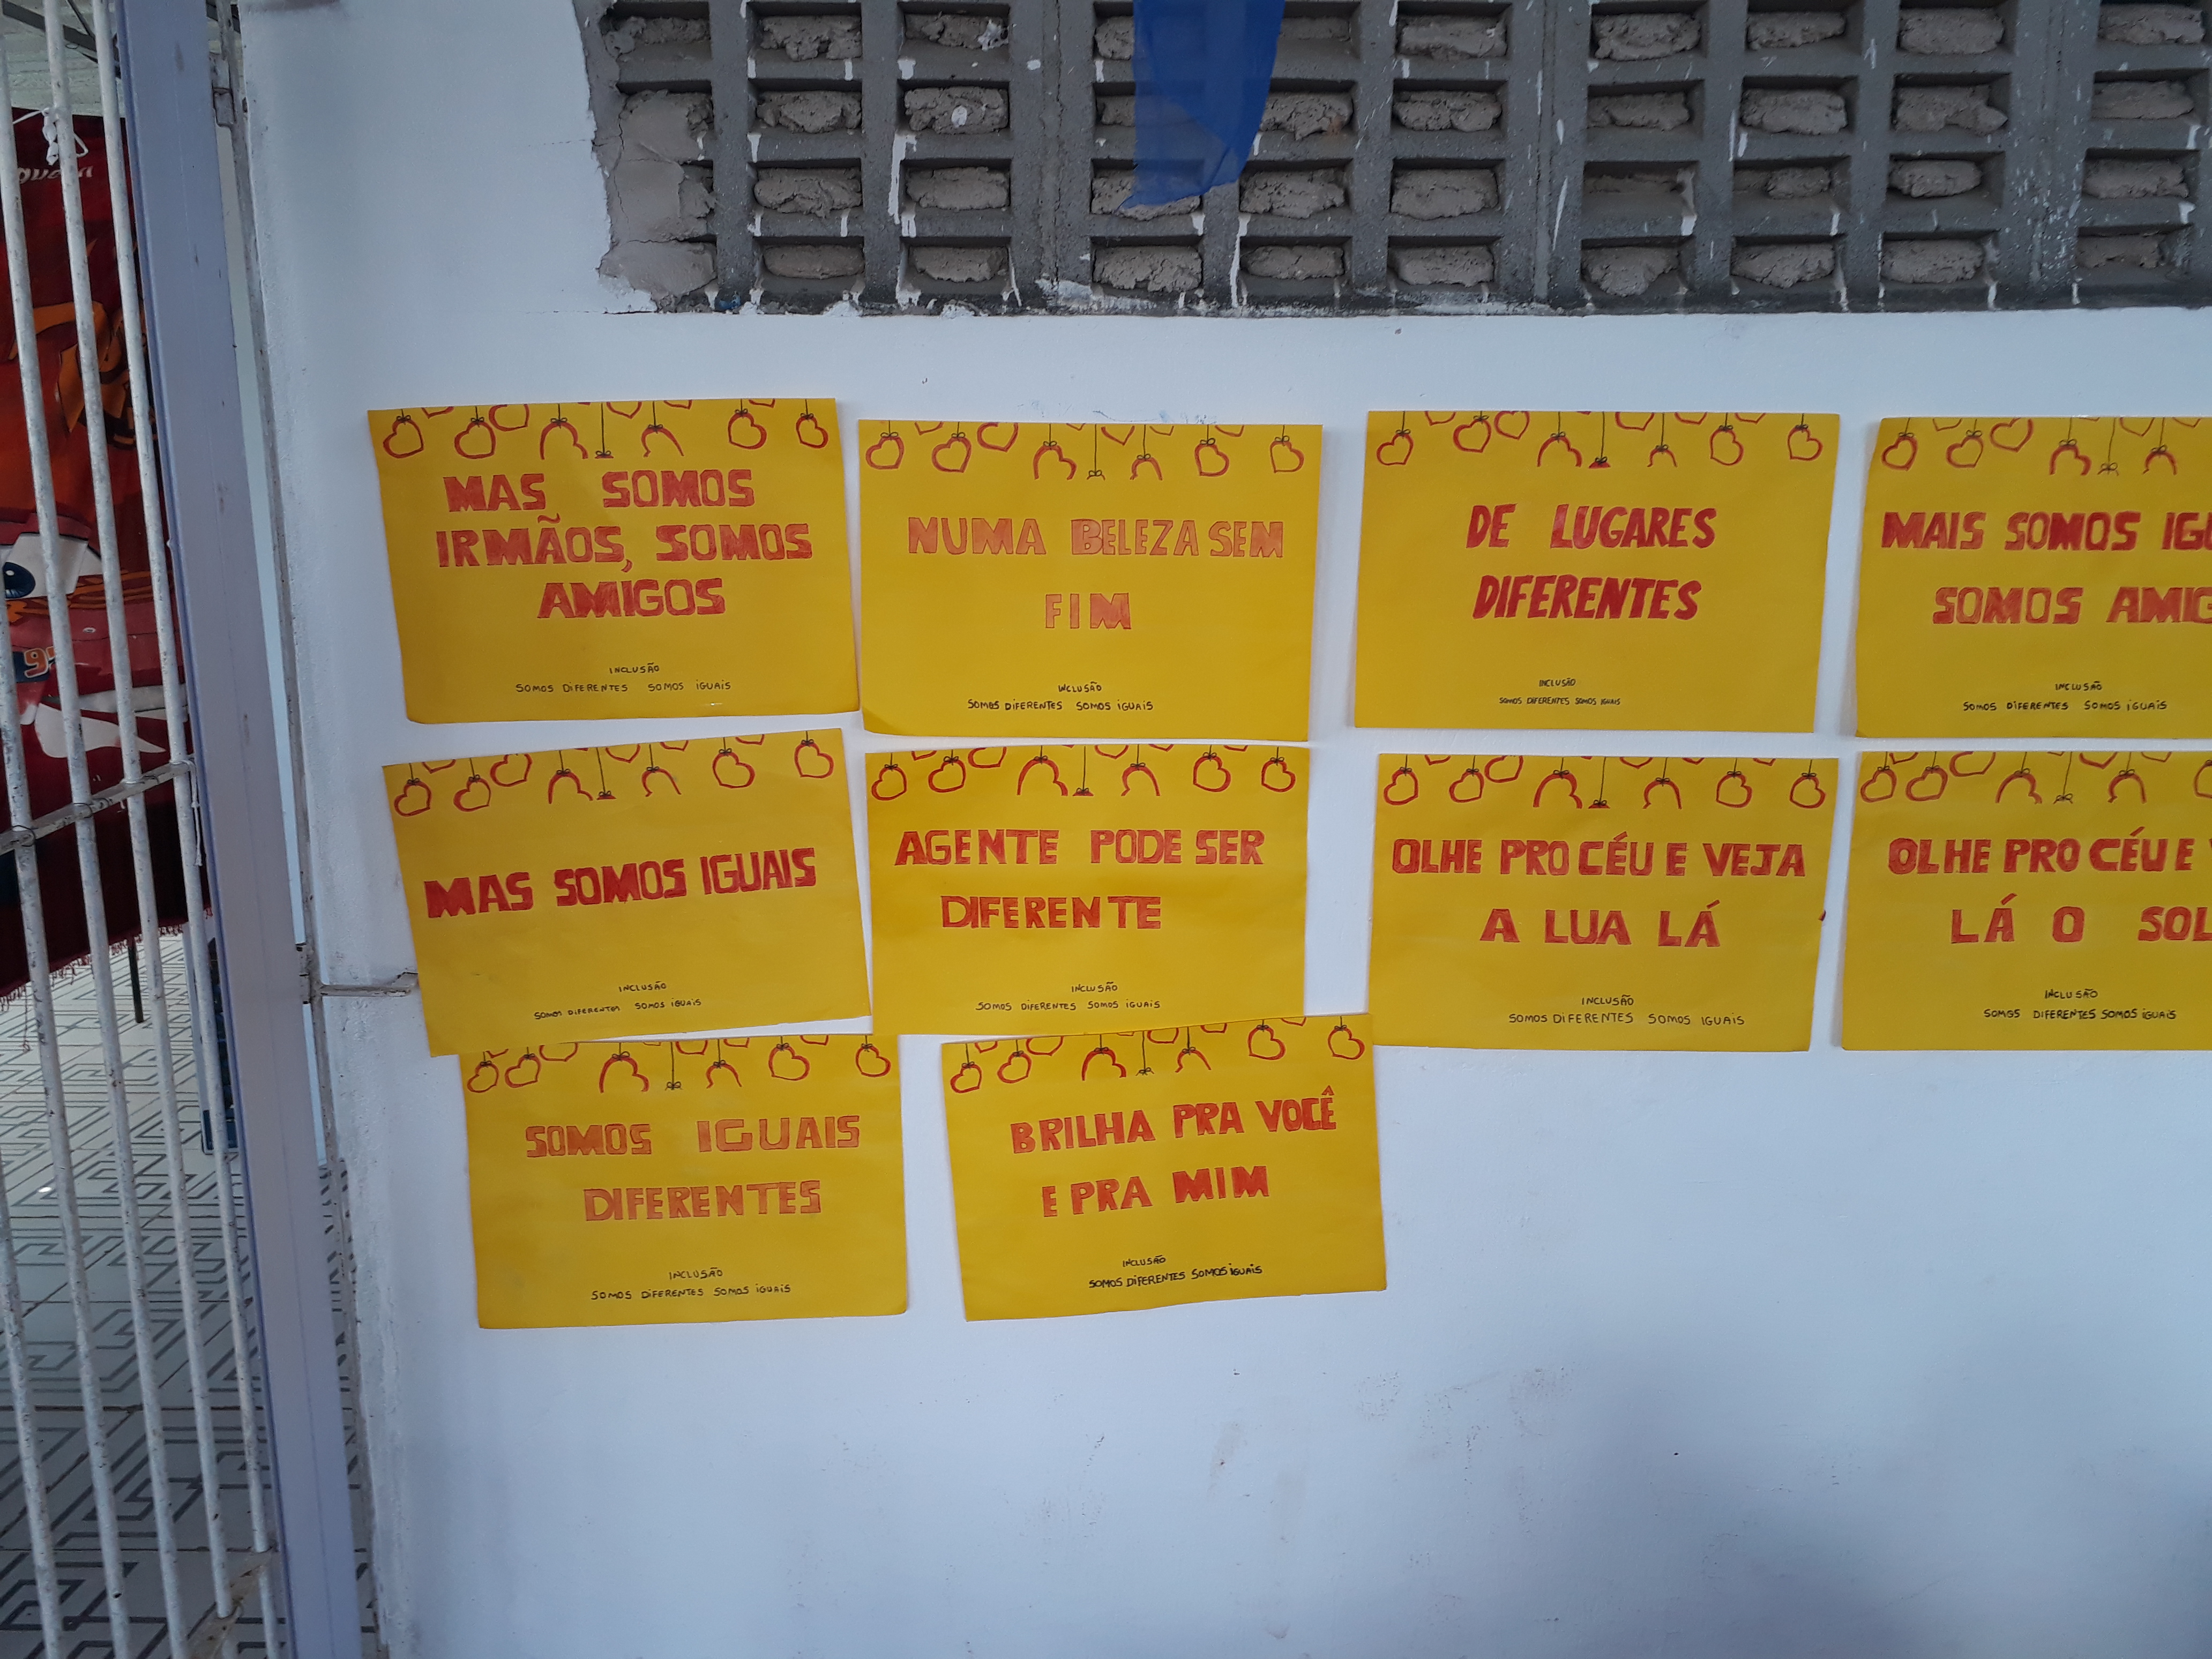 MAS SOMOS
IRMÃOS, SOMOS
AMIGOS
INCLUSÃO
SOMOS DIFERENTES SOMOS IGUAIS
NUMA BELEZA SEM
FIM
INCLUSÃO
SOMOS DIFERENTES SOMOS IGUAIS
DE LUGARES
DIFERENTES
INCLUSÃO
SOMOS DIFERENTES SOMOS IGUAIS
MAIS SOMOS
SOMOS
INCLUSÃO
SOMOS DIFERENTES SOMOS IGUAIS
MAS SOMOS IGUAIS
INCLUSÃO
SOMOS DIFERENTES SOMOS IGUAIS
AGENTE PODE SER
DIFERENTE
INCLUSÃO
SOMOS DIFERENTES SOMOS IGUAIS
OLHE PRO CÉU E VEJA
A LUA LÁ
INCLUSÃO
SOMOS DIFERENTES SOMOS IGUAIS
OLHE PRO CÉU E
LÁ O SOL
INCLUSÃO
SOMOS DIFERENTES SOMOS IGUAIS
SOMOS IGUAIS
DIFERENTES
INCLUSÃO
SOMOS DIFERENTES SOMOS IGUAIS
BRILHA PRA VOCÊ
E PRA MIM
INCLUSÃO
SOMOS DIFERENTES SOMOS IGUAIS